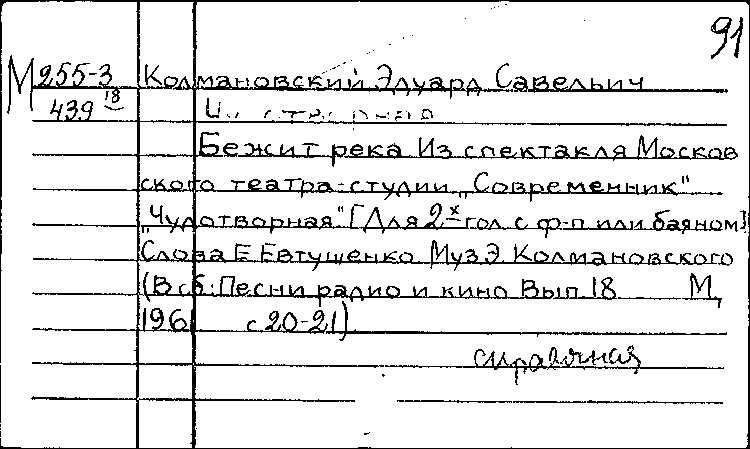 91
М 255-3 Колмановский Эдуард Савельич
439 18
Бежит река Из спектакля Москов
ского театра-студии „Современник"
„Чудотворная" [Для 2х гол с ф-п или баяном]
Слова Е Евтушенко Муз Э Колмановского
(В сб: Песни радио и кино Вып 18 М,
1961 с 20-21)
справочная